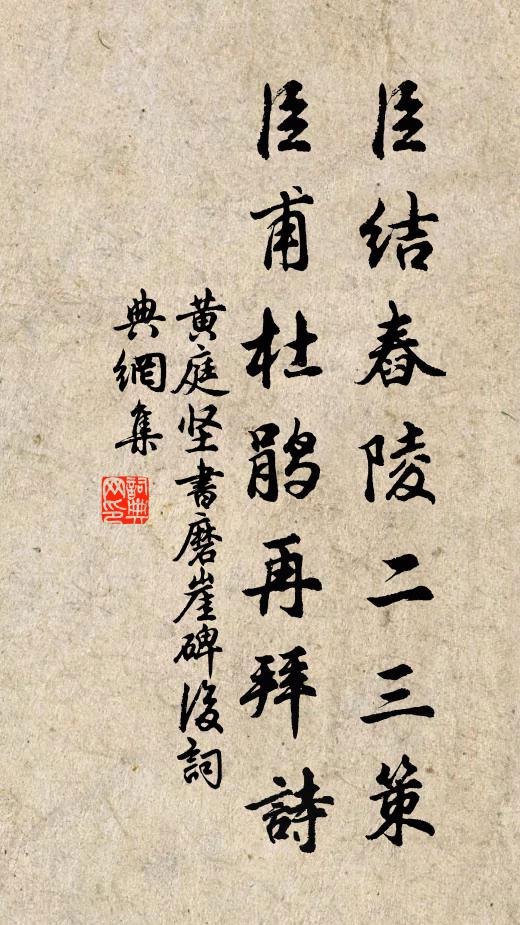 臣结舂陵二三策
臣甫杜鹃再拜詩
黄庭坚書磨崖碑後詞
典網集
詞典
网印